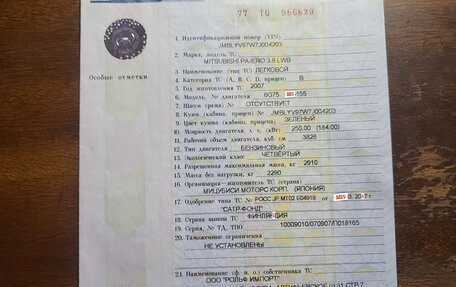 77 ТО 986829
1. Идентификационный номер (VIN)
JMBLYV97W7J004203
2. Марка, модель ТС
MITSUBISHI PAJERO 3.8 LWB
3. Наименование (тип ТС) ЛЕГКОВОЙ
Особые отметки
4. Категория ТС (А, В, С, D, прицеп) B
5. Год изготовления ТС 2007
6. Модель, № двигателя 6G75 155
7. Шасси (рама) № ОТСУТСТВУЕТ
8. Кузов (кабина, прицеп) № JMBLYV97W7J004203
9. Цвет кузова (кабины, прицепа) ЗЕЛЕНЫЙ
10. Мощность двигателя, л. с. (кВт) 250.00 (184.00)
11. Рабочий объем двигателя, куб. см 3828
12. Тип двигателя БЕНЗИНОВЫЙ
13. Экологический класс ЧЕТВЕРТЫЙ
14. Разрешенная максимальная масса, кг 2910
15. Масса без нагрузки, кг 2290
16. Организация – изготовитель ТС (страна)
МИЦУБИСИ МОТОРС КОРП. (ЯПОНИЯ)
17. Одобрение типа ТС № РОСС JP.MT02.E04919 от
"САТР-ФОНД"
18. Страна вывоза ТС ФИНЛЯНДИЯ
19. Серия, № ТД, ТПО 10009010/070907/П018165
20. Таможенные ограничения
НЕ УСТАНОВЛЕНЫ
21. Наименование (ф. и. о.) собственника ТС
ООО "РОЛЬФ ИМПОРТ"